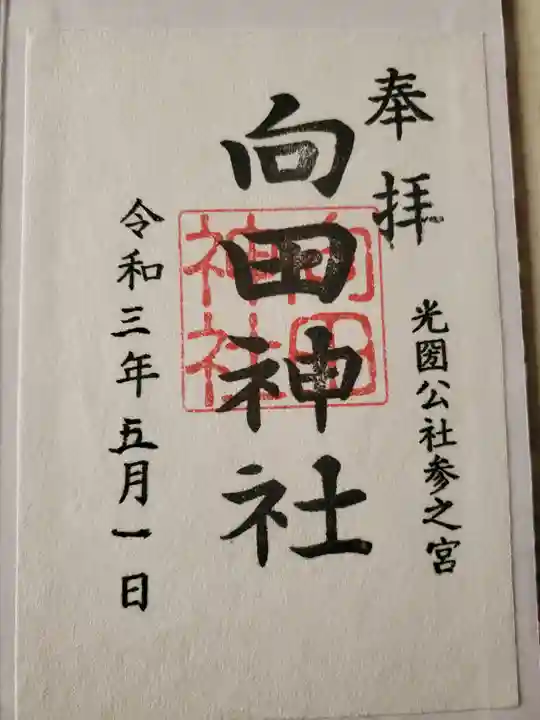 奉拝
光圀公社参之宮
向田神社
向田神社
令和三年五月一日